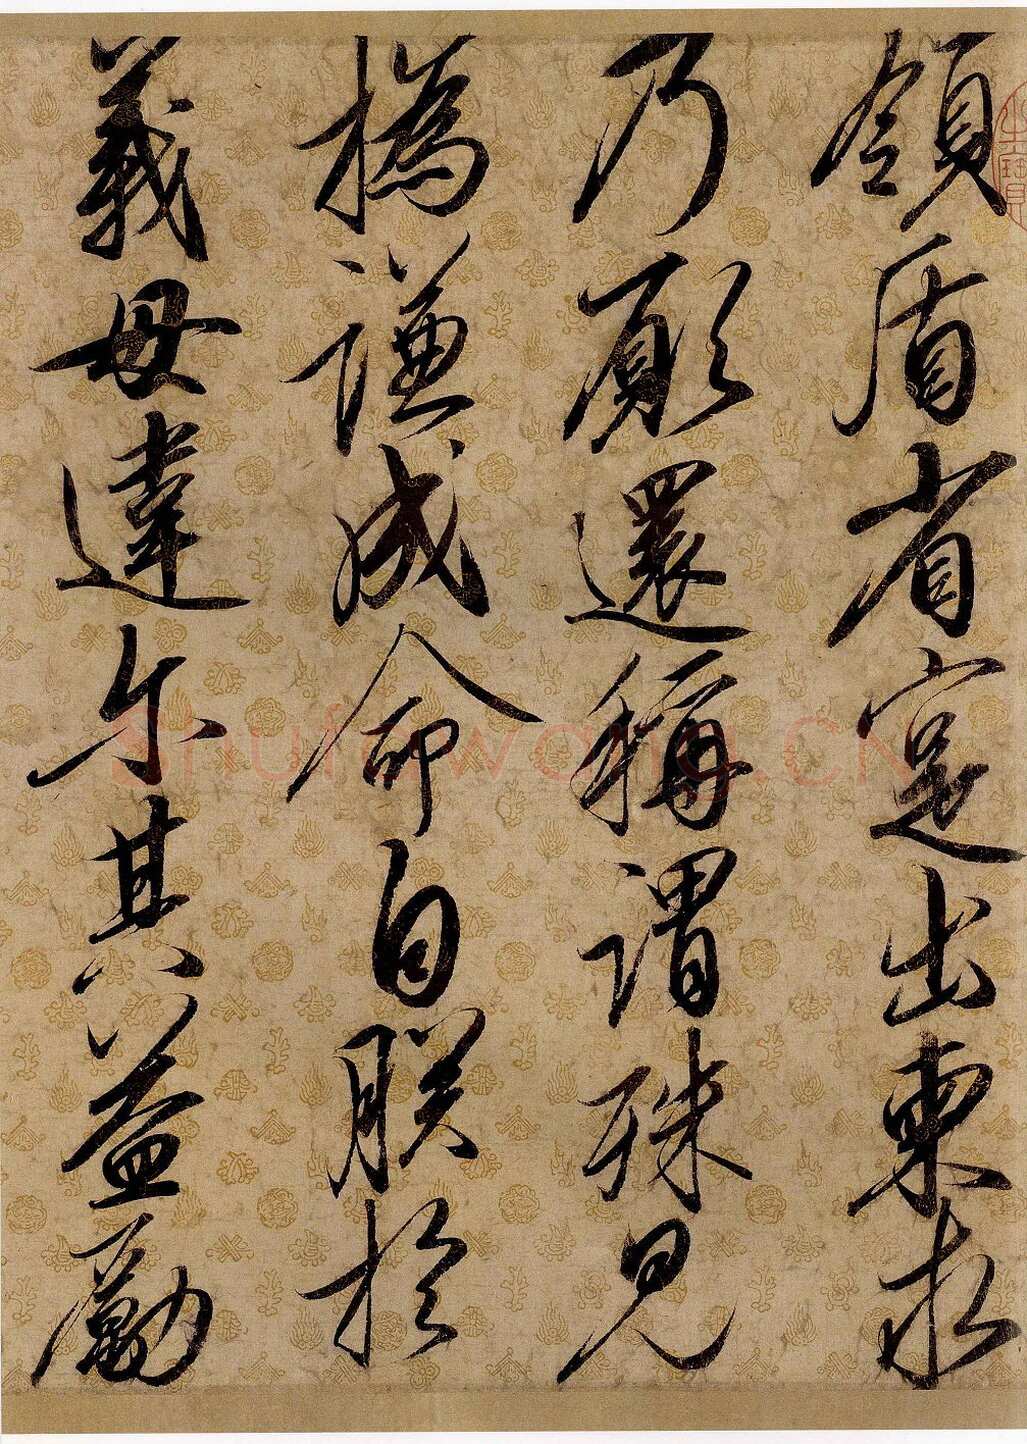 領盾省寔出柬求
乃願還稱謂殊見
撝謙成命自朕於
義毋違尔其益勵
Shufawang.CN